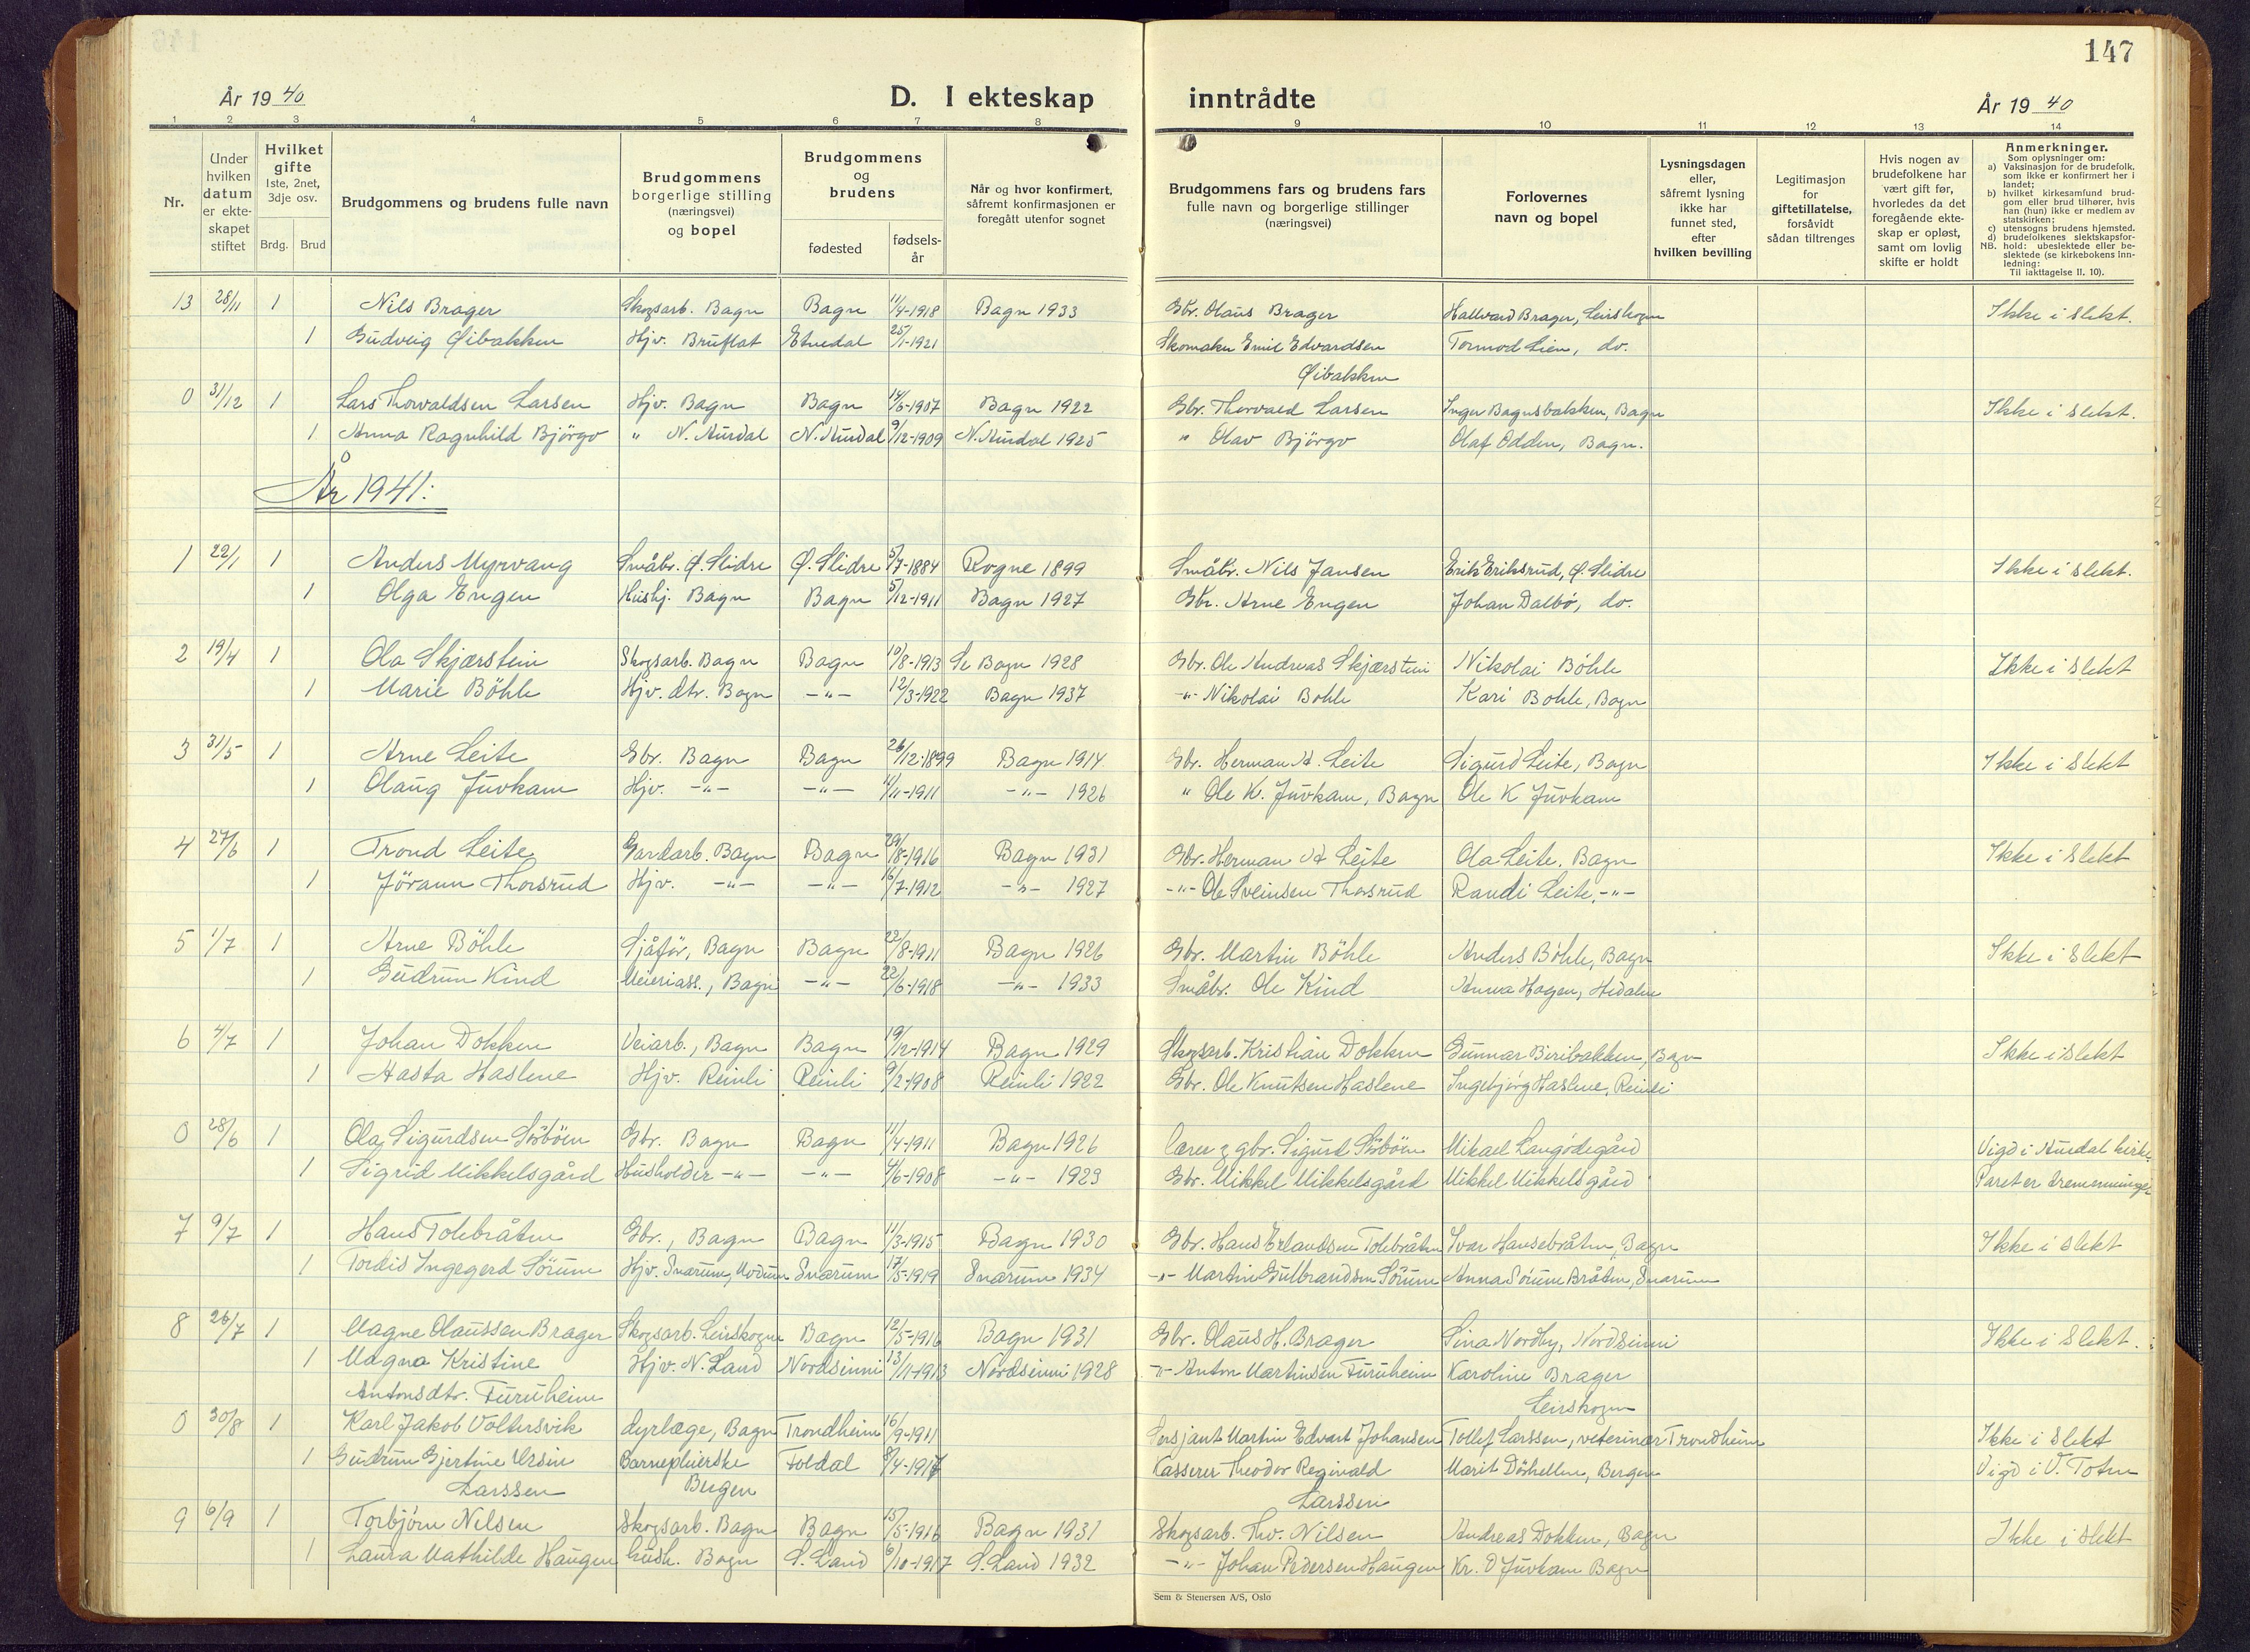 147
År 1940
D. I ekteskap inntrådte
År 1940
1 2 3 4 5 6 7 8 9 10 11 12 13 14
Nr.
Under hvilken datum er ekte- skapet stiftet
Hvilket gifte 1ste, 2net, 3dje osv.
Brdg. Brud
Brudgommens og brudens fulle navn
Brudgommens borgerlige stilling (næringsvei) og bopel
Brudgommens og brudens
fødested
fødsels- år
Når og hvor konfirmert, såfremt konfirmasjonen er foregått utenfor sognet
Brudgommens fars og brudens fars fulle navn og borgerlige stillinger (næringsvei)
Forlovernes navn og bopel
Lysningsdagen eller, såfremt lysning ikke har funnet sted, efter hvilken bevilling
Legitimasjon for giftetillatelse, forsåvidt sådan tiltrenges
Hvis nogen av brudefolkene har vært gift før, hvorledes da det foregående ekte- skap er opløst, samt om lovlig skifte er holdt
Anmerkninger.
Som oplysninger om:
a) Vaksinasjon for de brudefolk, som ikke er konfirmert her i landet;
b) hvilket kirkesamfund brud- gom eller brud tilhører, hvis han (hun) ikke er medlem av statskirken;
c) utensogns brudens hjemsted.
d) brudefolkenes slektskapsfor-
NB. hold: ubeslektede eller be- slektede (se kirkebokens inn- ledning:
Til iakttagelse II. 10).
13 28/11 1 Nils Brager Skogsarb. Bagn Bagn 11/4-1918 Bagn 1933 Gbr. Olaus Brager Hallvard Brager, Leirskogen Ikke i slekt.
1 Gudveig Øibakken Hjv. Bruflat Etnedal 25/1-1921 Skomaker Emil Edvardsen Tormod Lien, do.
Øibakken
0 31/12 1 Lars Thorvaldsen Larsen Hjv. Bagn Bagn 14/6-1907 Bagn 1922 Gbr. Thorvald Larsen Inger Bagnsbakken, Bagn Ikke i slekt.
1 Anna Ragnhild Björgo " N. Aurdal N. Aurdal 9/12-1909 N. Aurdal 1925 " Olav Björgo Olaf Odden, Bagn.
År 1941:
1 22/1 1 Anders Myrvang Småbr. Ø. Slidre Ø. Slidre 5/7-1884 Rogne 1899 Småbr. Nils Jansen Erik Eriksrud, Ø. Slidre Ikke i slekt.
1 Olga Engen Hushj. Bagn Bagn 5/12-1911 Bagn 1927 Gbr. Arne Engen Johan Dalbö, do.
2 19/4 1 Ola Skjærstein Skogsarb. Bagn Bagn 10/8-1913 Bagn 1928 Gbr. Ole Andreas Skjærstein Nikolai Böhle Ikke i slekt
1 Marie Böhle Hjv. dtr. Bagn -"- 12/3-1922 Bagn 1937 -"- Nikolai Bohle Kari Bohle, Bagn
3 31/5 1 Arne Leite Gbr. Bagn Bagn 26/12-1899 Bagn 1914 Gbr. Herman H. Leite Sigurd Leite, Bagn Ikke i slekt
1 Olaug Juvkam Hjv. -"- -"- 11/11-1911 -"- 1926 " Ole K. Juvkam, Bagn Ole K Juvkam
4 27/6 1 Trond Leite Gardarb. Bagn Bagn 29/8-1916 Bagn 1931 Gbr. Herman H Leite Ola Leite. Bagn Ikke i slekt
1 Jörann Thorsrud Hjv. -"- -"- 16/7-1912 -"- 1927 -"- Ole Sveinsen Thorsrud Randi Leite, -"-
5 1/7 1 Arne Böhle Sjåför, Bagn Bagn 22/8-1911 Bagn 1926 Gbr. Martin Böhle Anders Böhle, Bagn Ikke i slekt
1 Gudrun Kind Meieriass., Bagn -"- 22/6-1918 -"- 1933 Småbr. Ole Kind Anna Hagen, Hedalen
6 4/7 1 Johan Dokken Veiarb., Bagn Bagn 19/12-1914 Bagn 1929 Skogsarb. Kristian Dokken Gunnar Beribakken, Bagn Ikke i slekt
1 Aasta Haslene Hjv. Reinli Reinli 9/2-1908 Reinli 1922 Gbr. Ole Knutsen Haslene Ingebjörg Haslene, Reinli
0 28/6 1 Olaf Sigurdsen Sörböen Gbr. Bagn Bagn 11/4-1911 Bagn 1926 lærer g gbr. Sigurd Sörböen Mikael Langödegård Vigd i Aurdal kirke
1 Sigrid Mikkelsgård Husholder -"- -"- 4/6-1908 -"- 1923 Gbr. Mikkel Mikkelsgård Mikkel Mikkelsgård Paret er tremenninger
7 9/7 1 Hans Tolebråten Gbr., Bagn Bagn 11/3-1915 Bagn 1930 Gbr. Hans Erlandsen Tolebråten Ivar Hansebråten, Bagn Ikke i slekt
1 Tordis Ingegerd Sörum Hjv. Snarum, Modum Snarum 17/5-1919 Snarum 1934 -"- Martin Gulbrandsen Sörum Anna Sörum Bråten, Snarum
8 26/7 1 Magne Olaussen Brager Skogsarb. Leirskogen Bagn 12/5-1916 Bagn 1931 Gbr. Olaus H. Brager Lina Nordby, Nordsinni Ikke i slekt.
1 Magna Kristine Hjv. N. Land Nordsinni 13/11-1913 Nordsinni 1928 -"- Anton Martinsen Furuheim Karoline Brager
Antonsdtr. Furuheim Leirskogen
0 30/8 1 Karl Jakob Voltersvik dyrlæge, Bagn Trondheim 16/9-1911 Sersjant Martin Edvart Johansen Tollef Larssen, veterinær Trondheim Ikke i slekt
1 Gudrun Gjertine Ursin Barnepleierske Foldal 8/4-1917 Kasserer Theodor Reginald Marit Dörhellen, Bergen Vigd i V. Toten
Larssen Bergen Larssen
9 6/9 1 Torbjörn Nilsen Skogsarb. Bagn Bagn 15/5-1916 Bagn 1931 Skogsarb. Thv. Nilsen Andreas Dokken, Bagn Ikke i slekt
1 Laura Mathilde Haugen hush. Bagn S. Land 6/10-1917 S. Land 1932 -"- Johan Pedersen Haugen Kr. O Juvkam Bagn
Sem & Stenersen A/S, Oslo